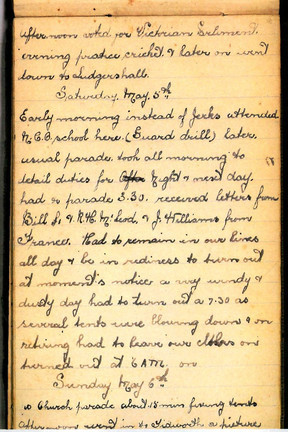 afternoon voted for Victorian Parliment.
evening pratice cricket & later on went
down to Ludgershall.
Saturday, May. 5th
Early morning instead of Jerks attended
N.C.O. school here, (Guard drill) later,
usual parade. took all morning to
detail duties for Night & next day.
had to parade 3.30. received letters from
Bill & McLeod, & J. Williams from
France. Had to remain in our lines
all day & be in rediness to turn out
at moment's notice a very windy &
dusty day had to turn out a 7.30 as
several tents were blowing down & on
retiring had to leave our clothes on
turned out at 6 AM. on
Sunday May 6th
to Church parade about 15 min fixing tents
afternoon went in to Tidworth a picture